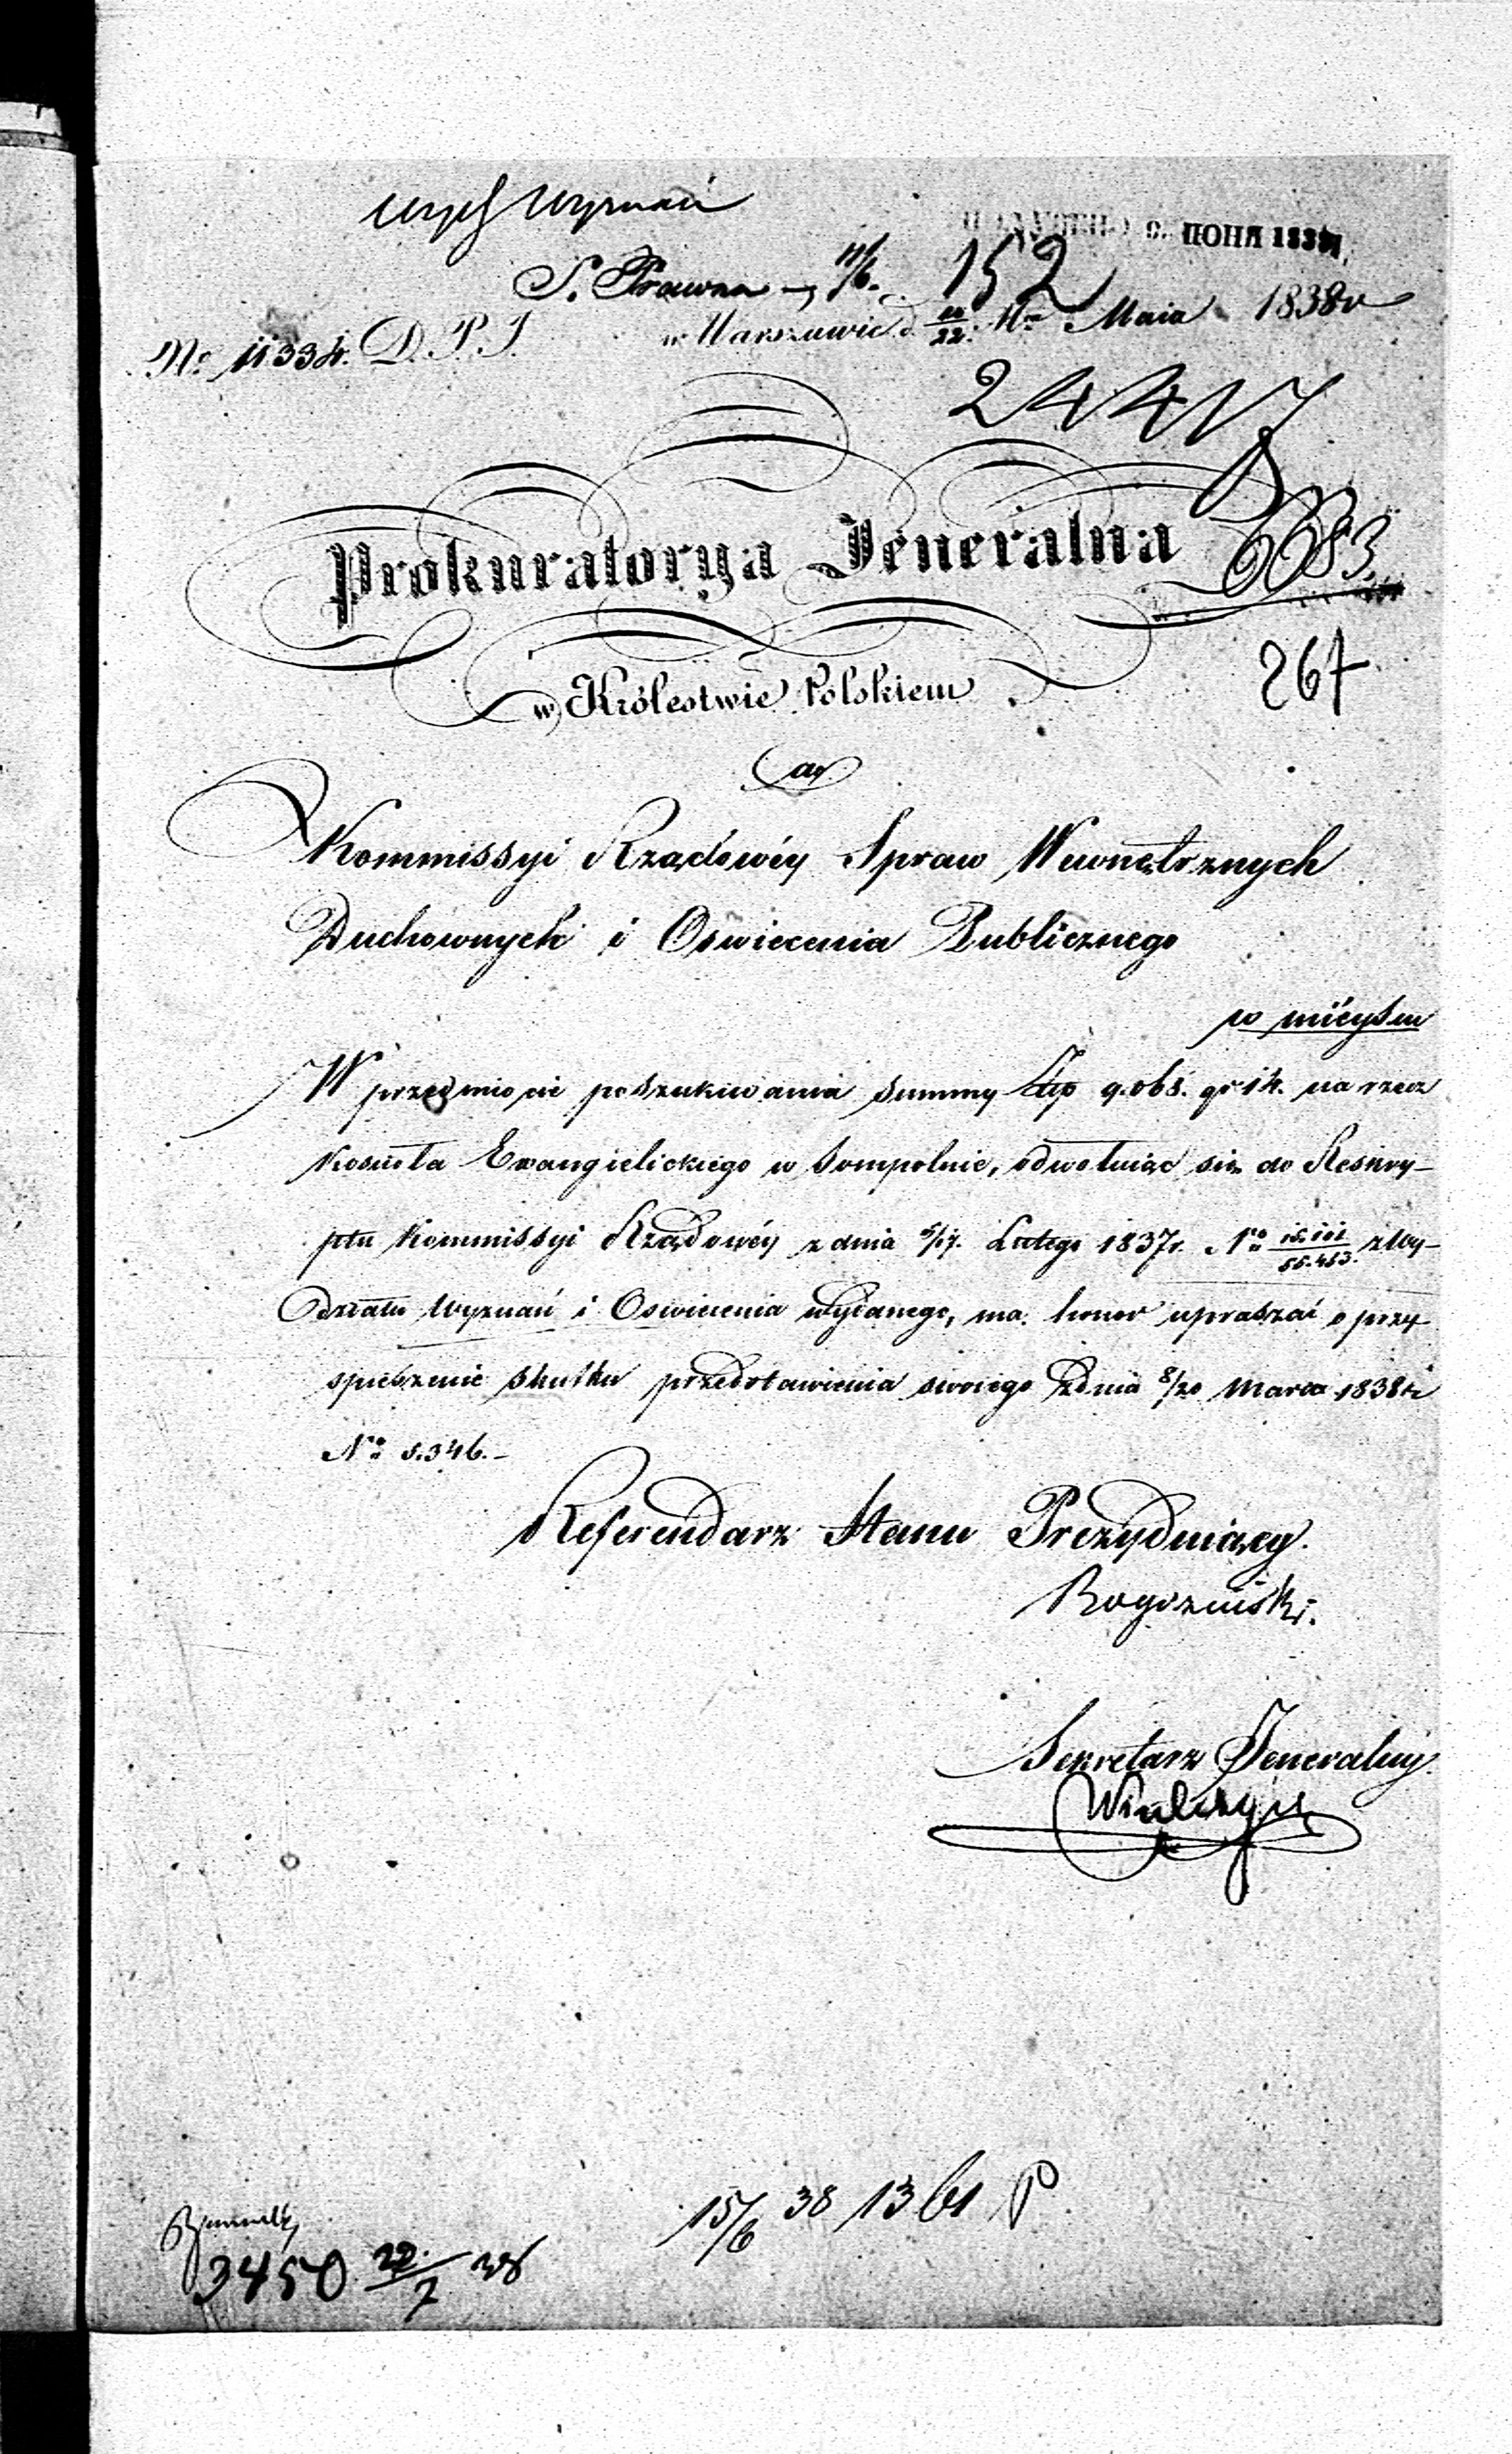 Wyd. Wyznań
9. ІЮНЯ 1838
S. Prawna — 11/6. 152
w Warszawie d. 10/22. Mca Maia 1838 r
No 11334. D. P. J.
24417
6683
Prokuratorya Jeneralna
267
w Królestwie Polskiem
do
Kommissyi Rządowéy Spraw Wewnętrznych
Duchownych i Oswiecenia Publicznego
w mieyscu
W przedmiocie poszukiwania summy Złp 9.068. gr 14. na rzecz
Kościoła Ewangielickiego w Sompolnie, odwołuiąc się do Reskry-
ptu Kommissyi Rządowéy z dnia 5/17. Lutego 1837 r. No 15.111/55.453. z Wy-
działu Wyznań i Oswiecenia wydanego, ma honor upraszać o przy-
spieszenie skutku przedstawienia swoiego z dnia 8/20 Marca 1838 r
No 5.346.-
Referendarz Stanu Prezyduiący.
Rogoziński.
Sekretarz Jeneralny.
15/6 38 1361 P
3450 22/7 38